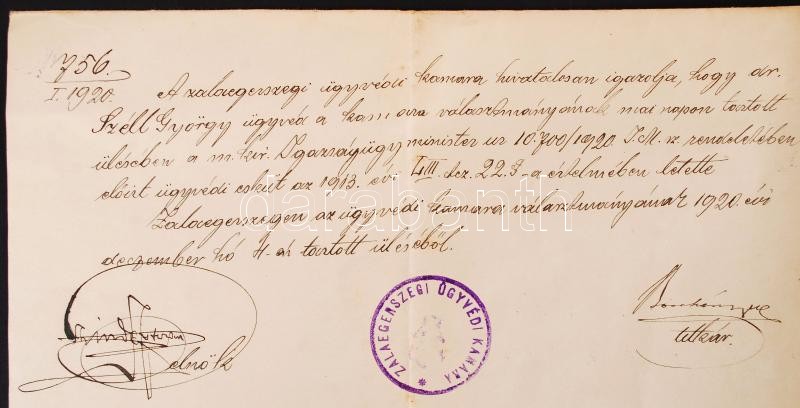 756.
I. 1920.
A zalaegerszegi ügyvédi kamara hivatalosan igazolja, hogy dr.
Széll György ügyvéd a kamara választmányának mai napon tartott
ülésében a m. kir. Igazságügyminister ur 10.700/1920 I.M. sz. rendeletében
előirt ügyvédi esküt az 1913. évi LIII. tcz. 22.§-a értelmében letette
Zalaegerszegen az ügyvédi kamara választmányának 1920. évi
deczember hó 4-én tartott üléséből.
elnök
titkár.
ZALAEGERSZEGI ÜGYVÉDI KAMARA *
darabanth